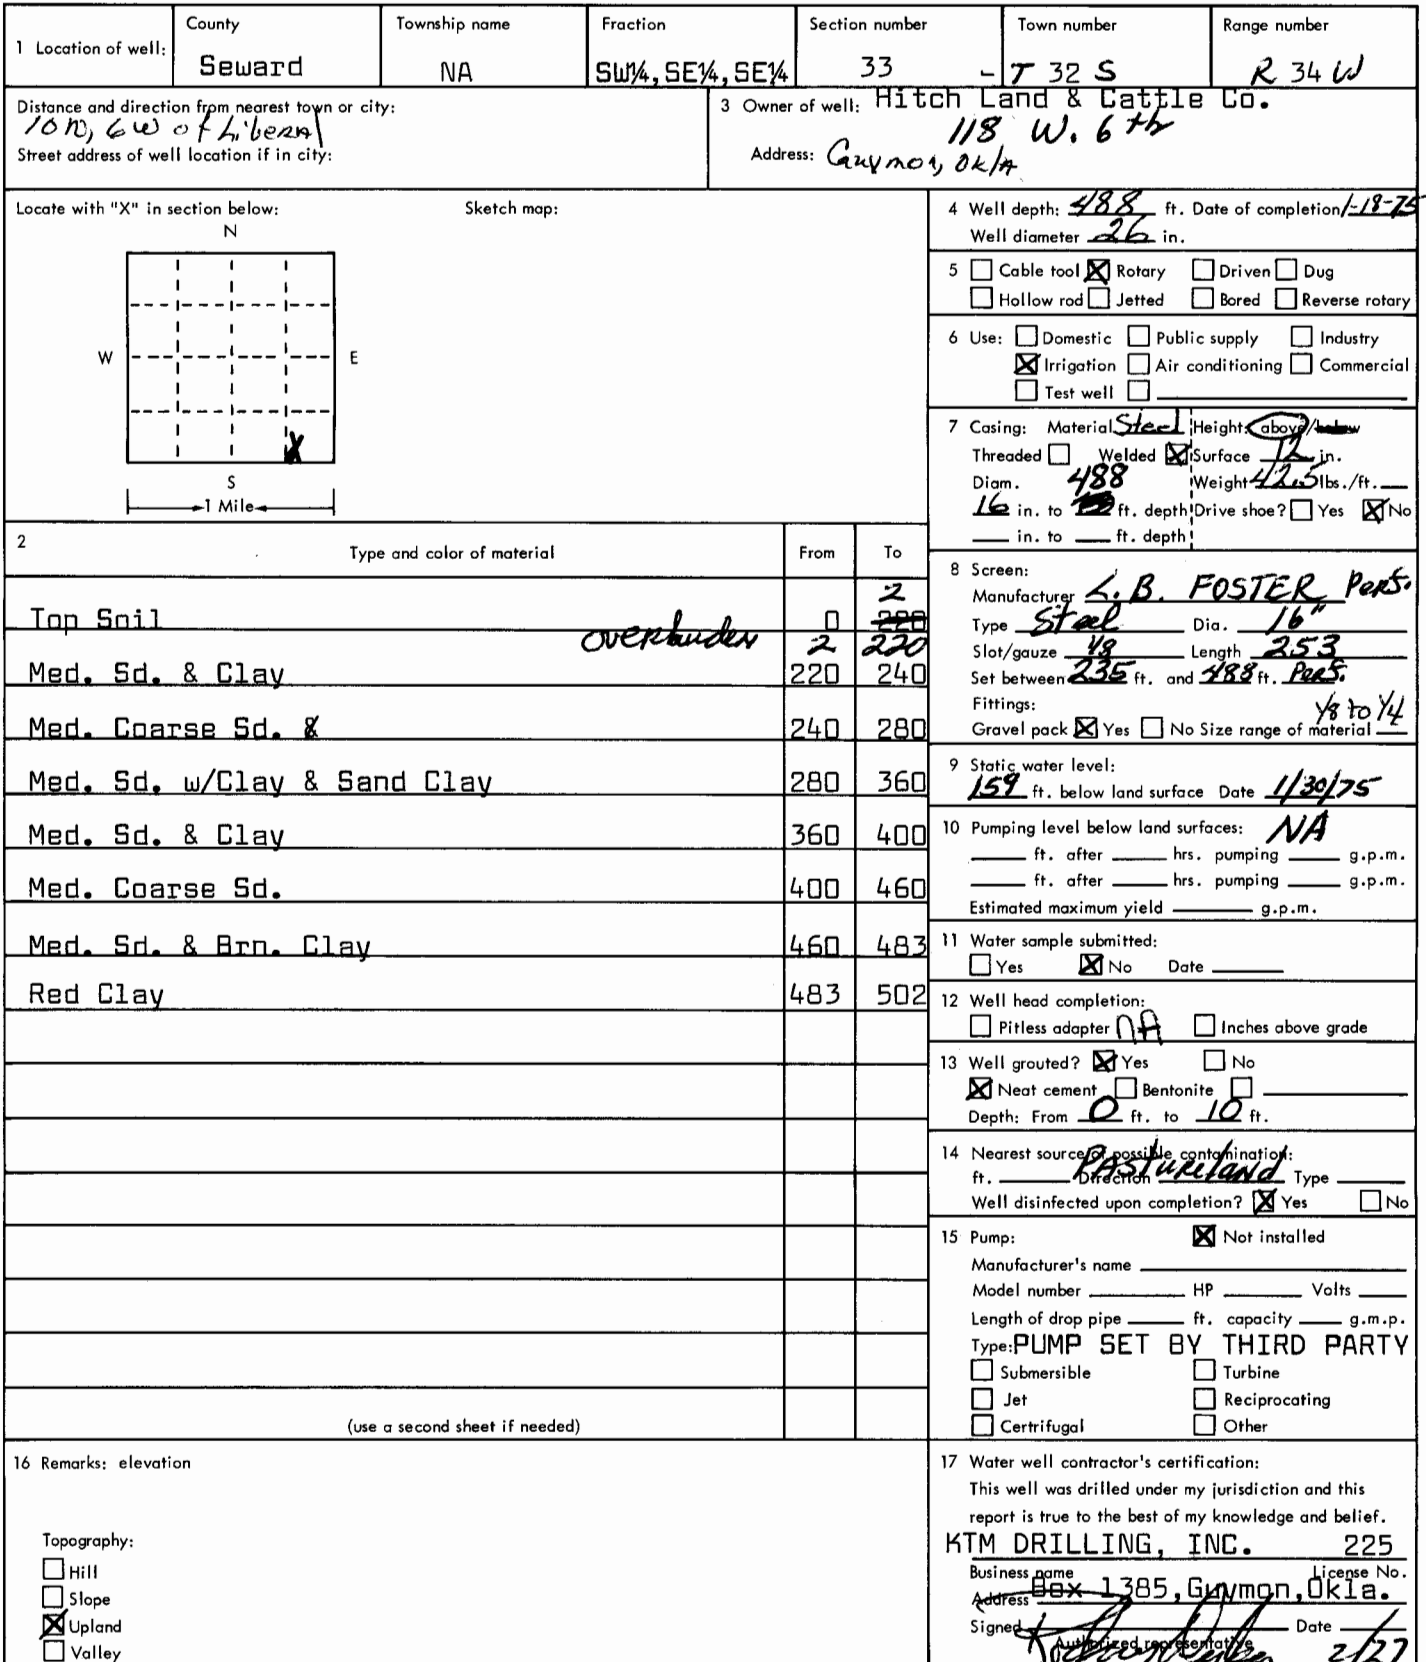 1 Location of well:
County
Seward
Township name
NA
Fraction
SW¼, SE¼, SE¼
Section number
33 -
Town number
T 32 S
Range number
R 34 W
Distance and direction from nearest town or city:
10N, 6W of Liberal
Street address of well location if in city:
3 Owner of well: Hitch Land & Cattle Co.
118 W. 6th
Address: Guymon, Okla
Locate with "X" in section below:
Sketch map:
N
W
E
X
S
1 Mile
2
Type and color of material
From
To
Top Soil 0 2
Overburden 2 220
Med. Sd. & Clay 220 240
Med. Coarse Sd. & 240 280
Med. Sd. w/Clay & Sand Clay 280 360
Med. Sd. & Clay 360 400
Med. Coarse Sd. 400 460
Med. Sd. & Brn. Clay 460 483
Red Clay 483 502
(use a second sheet if needed)
16 Remarks: elevation
Topography:
Hill
Slope
X Upland
Valley
4 Well depth: 488 ft. Date of completion 1-18-75
Well diameter 26 in.
5 Cable tool X Rotary Driven Dug
Hollow rod Jetted Bored Reverse rotary
6 Use: Domestic Public supply Industry
X Irrigation Air conditioning Commercial
Test well
7 Casing: Material Steel Height: above/below
Threaded Welded X Surface 12 in.
Diam. 488 Weight 42.5 lbs./ft.
16 in. to ft. depth Drive shoe? Yes X No
in. to ft. depth
8 Screen:
Manufacturer L. B. FOSTER Perf.
Type Steel Dia. 16"
Slot/gauge 1/8 Length 253
Set between 235 ft. and 488 ft. Perf.
Fittings: 1/8 to 1/4
Gravel pack X Yes No Size range of material
9 Static water level:
159 ft. below land surface Date 1/30/75
10 Pumping level below land surfaces: NA
ft. after hrs. pumping g.p.m.
ft. after hrs. pumping g.p.m.
Estimated maximum yield g.p.m.
11 Water sample submitted:
Yes X No Date
12 Well head completion:
Pitless adapter NA Inches above grade
13 Well grouted? X Yes No
X Neat cement Bentonite
Depth: From 0 ft. to 10 ft.
14 Nearest source of possible contamination:
ft. Direction Pastureland Type
Well disinfected upon completion? X Yes No
15 Pump: X Not installed
Manufacturer's name
Model number HP Volts
Length of drop pipe ft. capacity g.m.p.
Type: PUMP SET BY THIRD PARTY
Submersible Turbine
Jet Reciprocating
Certrifugal Other
17 Water well contractor's certification:
This well was drilled under my jurisdiction and this
report is true to the best of my knowledge and belief.
KTM DRILLING, INC. 225
Business name License No.
Address Box 1385, Guymon, Okla.
Signed Date 2/27
Authorized representative